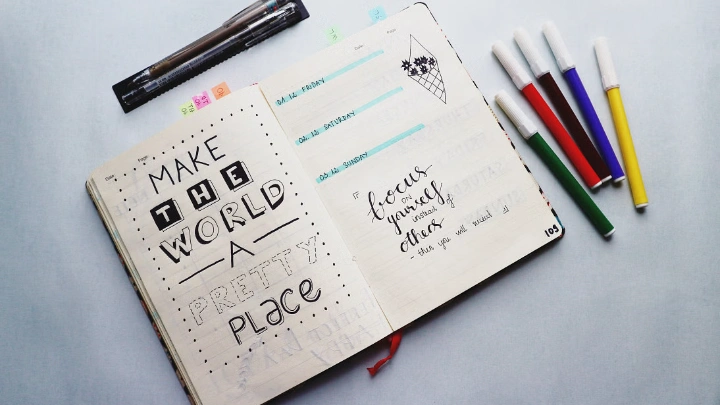 MAKE
THE
WORLD
A
PRETTY
PLACE
Date: Page:
01.12. FRIDAY
02.12. SATURDAY
03.12. SUNDAY
IF
focus
ON
yourself
instead of
others
- then you will